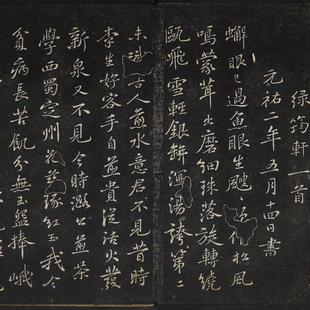 綠筠軒一首
元祐二年五月十四日書
蟹眼已過魚眼生颼颼欲作松風
鳴蒙茸出磨細珠落旋轉繞
甌飛雪輕銀缾瀉湯誇第二
未識古人煎水意君不見昔時
李生好客手自煎貴從活火發
新泉又不見今時潞公煎茶
學西蜀定州花瓷琢紅玉我今
貧病長苦飢分無玉盌捧峨